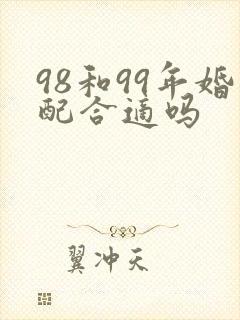 98和99年婚
配合适吗
翼冲天